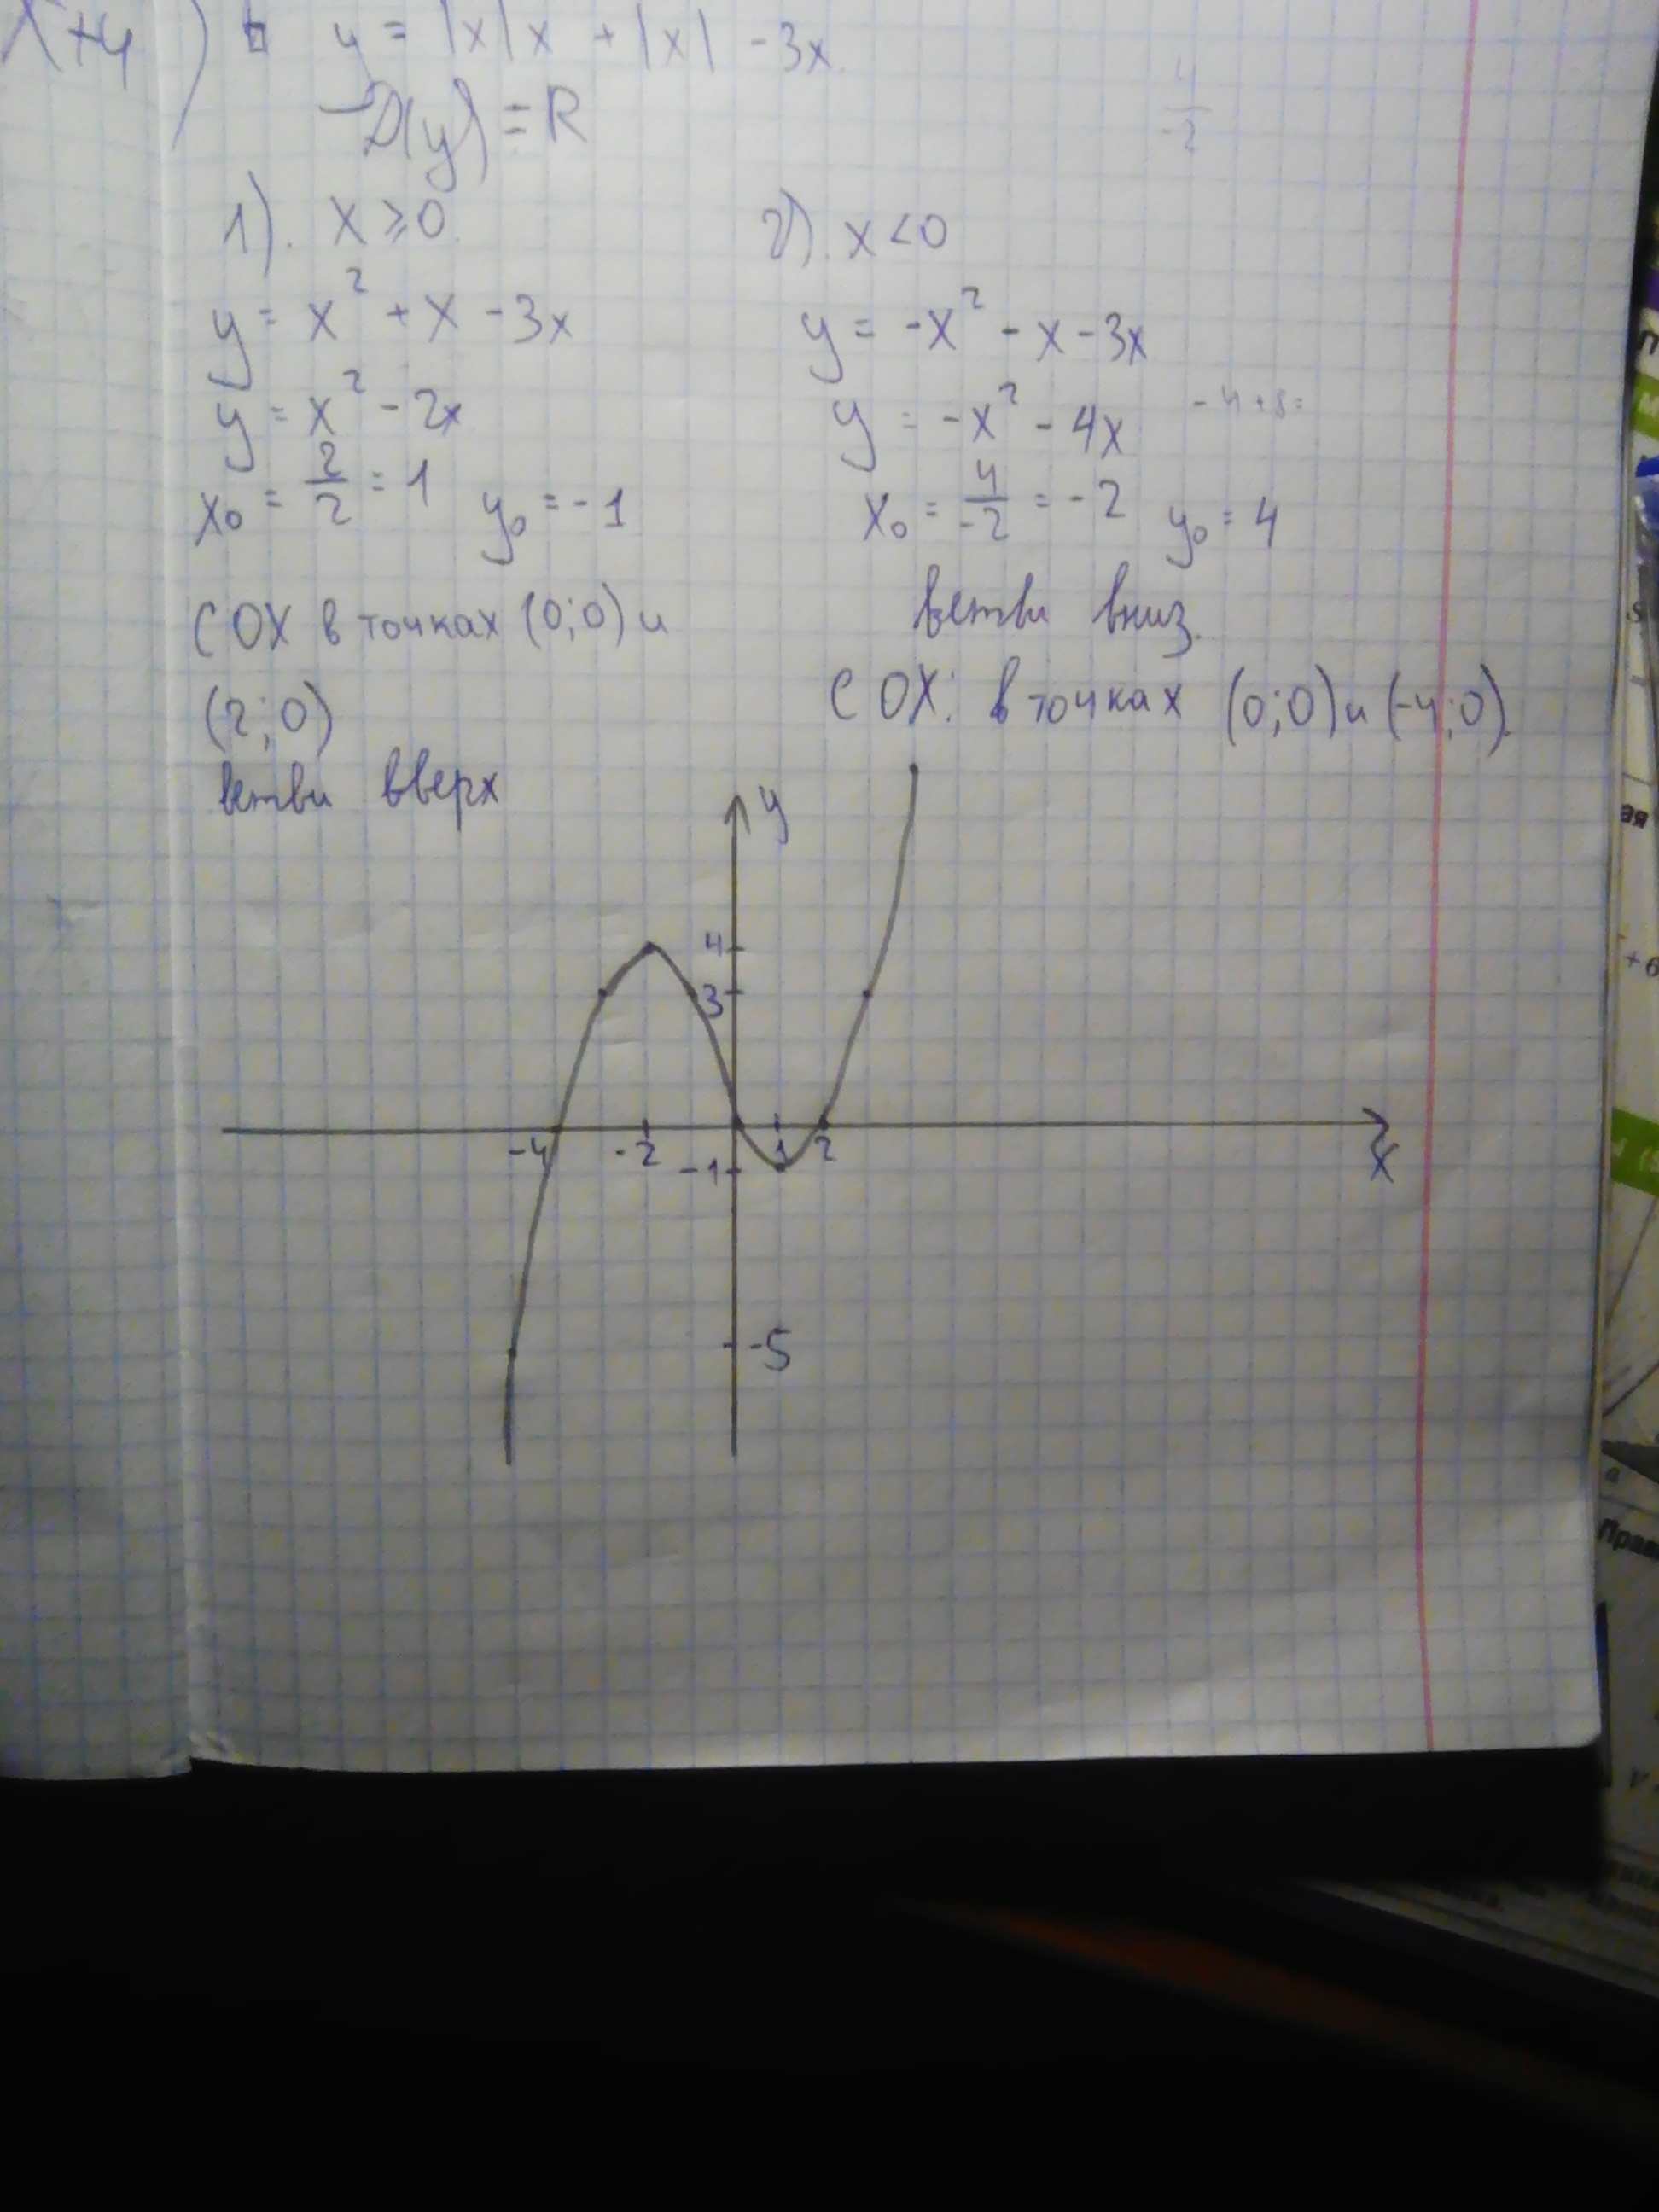 x+4) y = |x|x + |x| - 3x
D(y) = R
4/-2
1). x ≥ 0
y = x² + x - 3x
y = x² - 2x
x₀ = 2/2 = 1 y₀ = -1
С OX в точках (0;0) и
(2;0)
ветви вверх
2). x < 0
y = -x² - x - 3x
y = -x² - 4x
-4+8=
x₀ = 4/-2 = -2 y₀ = 4
ветви вниз.
С OX: в точках (0;0) и (-4;0).
y
4
3
-4 -2 1 2
-1
x
-5
ая
+6
а
Прав